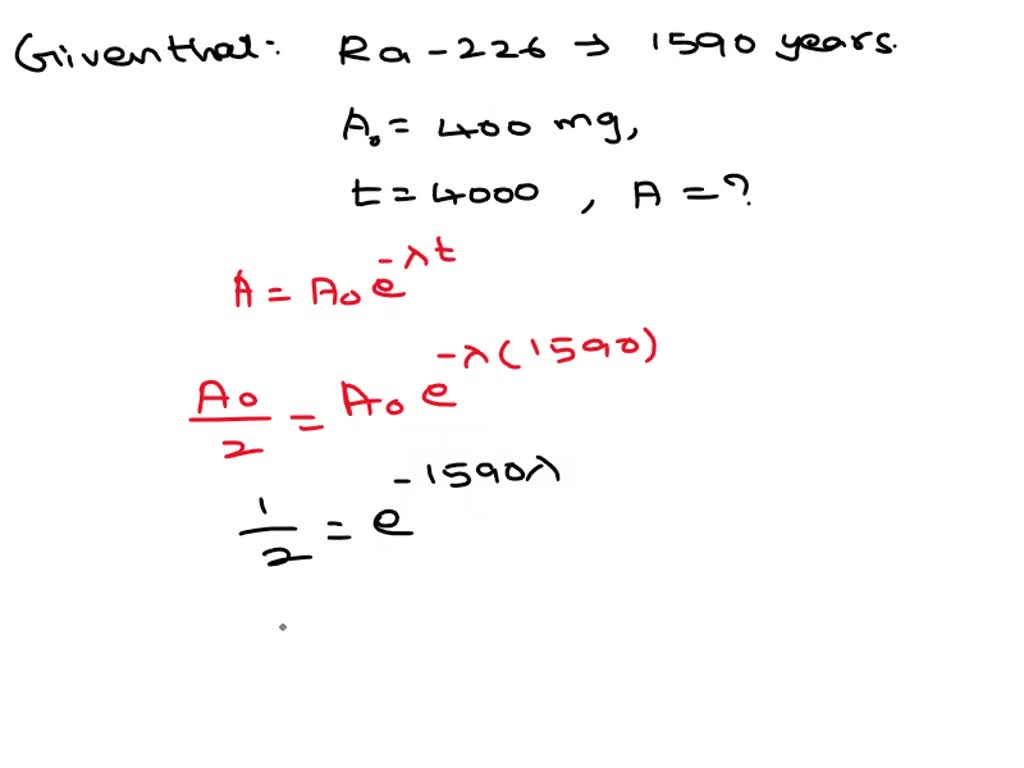 Given that: Ra-226 → 1590 years.
A₀ = 400 mg,
t = 4000 , A = ?
A = A₀ e^{-λt}
A₀/2 = A₀ e^{-λ(1590)}
1/2 = e^{-1590λ}